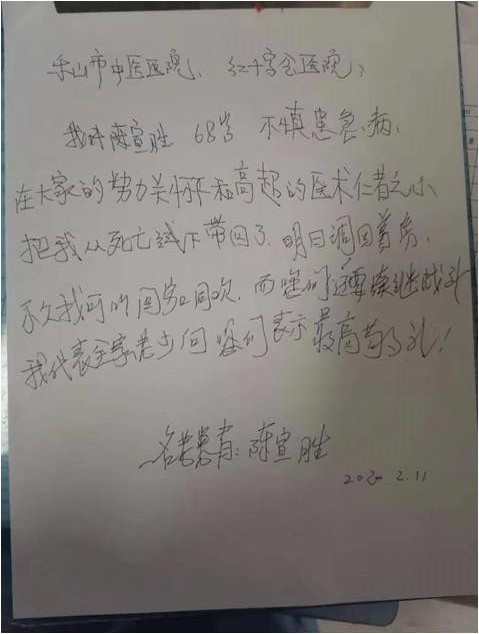 乐山市中医医院、红十字会医院:
我叫陈宣胜 68岁 不慎患急病,
在大家的努力关怀和高超的医术仁者之心
把我从死亡线下带回了,明日调回普房,
不久我可以回家同欢,而您们还要续继战斗
我代表全家老少向您们表示最高敬礼!
患者:陈宣胜
2020 2.11